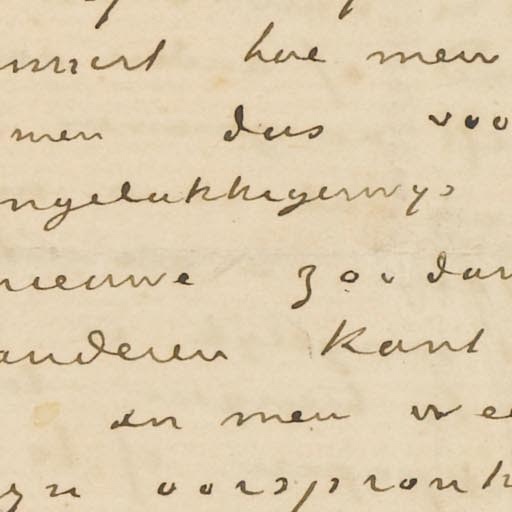 hoe men
men dus voo
ngelukkigerwys
nieuwe zoodan
anderen kant
en men wee
zyn oorspronk